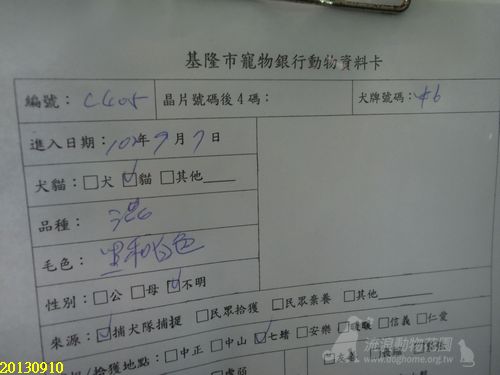 基隆市寵物銀行動物資料卡
編號： C405 晶片號碼後4碼： 犬牌號碼： #6
進入日期：102年9月7日
犬貓：□犬 ☑貓 □其他
品種： 混
毛色： 黑和白色
性別：□公 □母 ☑不明
來源：☑捕犬隊捕捉 □民眾拾獲 □民眾棄養 □其他
拾獲地點：□中正 □中山 ☑七堵 □安樂 □暖暖 □信義 □仁愛
流浪動物花園
http://www.doghome.org.tw
20130910